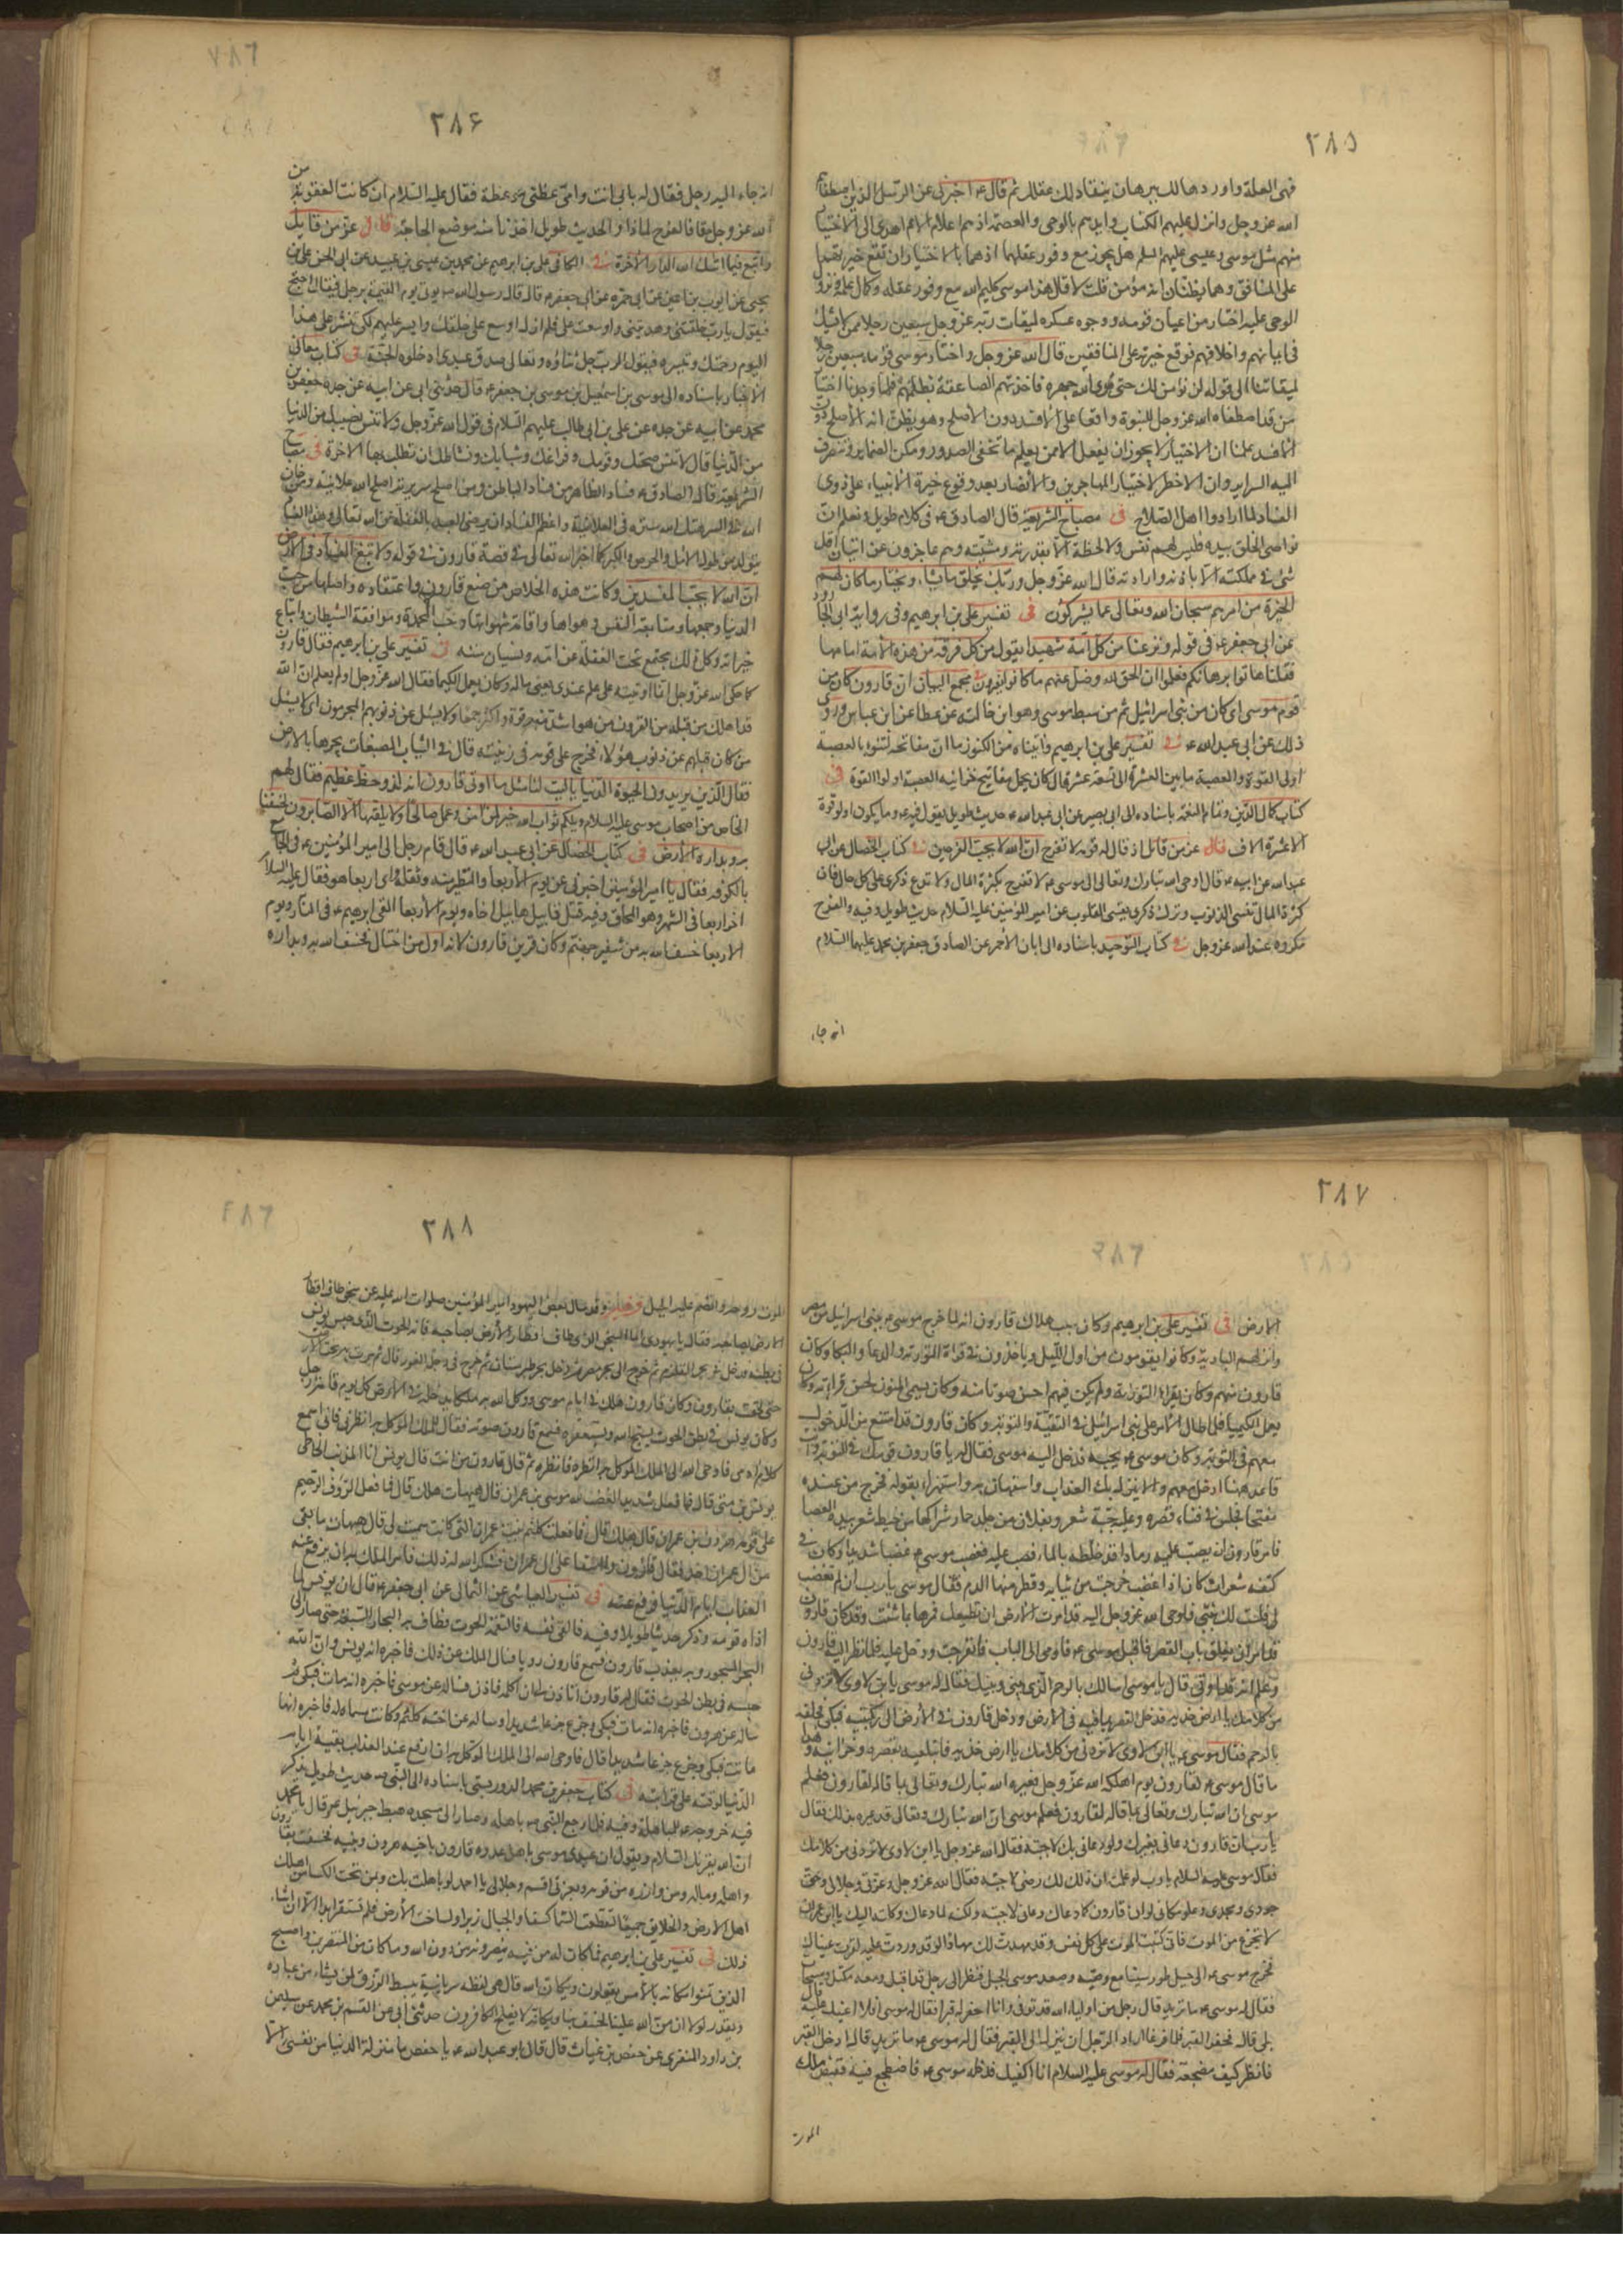 ٢٨٥
فهى العلة واوردها لك ببرهان ينقاد لك عقلك ثم قال ع اخبرنى عن الرسل الذين اصطفاهم
الله عز وجل وانزل عليهم الكتاب وايدهم بالوحى والعصمة اذ هم اعلام الامم اهدى الى الاختيار
منهم مثل موسى وعيسى عليهم السلم هل يجوز مع وفور عقلهما اذ هما بالاختيار ان تقع خيرتهما
على المنافق وهما يظنان انه مؤمن قلت لا قال هذا موسى كليم الله مع وفور عقله وكمال علمه ونزول
الوحى عليه اختار من اعيان قومه ووجوه عسكره لميقات ربه عز وجل سبعين رجلا ممن لا يشك
فى ايمانهم واخلاقهم فوقع خيرته على المنافقين قال الله عز وجل واختار موسى قومه سبعين رجلا
لميقاتنا الى قوله لن نؤمن لك حتى نرى الله جهرة فاخذتهم الصاعقة بظلمهم فلما وجدنا اختيار
من قد اصطفاه الله عز وجل للنبوة واقعا على الافسد دون الاصلح وهو يظن انه الاصلح دون
الافسد علمنا ان الاختيار لا يجوز ان يفعل الا من يعلم ما تخفى الصدور وتكن الضماير وتنصرف
اليه السراير وان لا خطر لاختيار المهاجرين والانصار بعد وقوع خيرة الانبياء على ذوى
الفساد لما ارادوا اهل الصلاح فى مصباح الشريعة قال الصادق ع فى كلام طويل وتعلم ان
نواصى الخلق بيده فليس لهم نفس ولا لحظة الا بقدرته ومشيته وهم عاجزون عن اتيان اقل
شى فى مملكته الا باذنه وارادته قال الله عز وجل وربك يخلق ما يشاء ويختار ما كان لهم
الخيرة من امرهم سبحان الله وتعالى عما يشركون فى تفسير على بن ابرهيم وفى رواية ابى الجارود
عن ابى جعفر ع فى قوله ونزعنا من كل امة شهيدا يقول من كل فرقة من هذه الامة امامها
فقلنا هاتوا برهانكم فعلموا ان الحق لله وضل عنهم ما كانوا يفترون مجمع البيان ان قارون كان من
قوم موسى اى كان من بنى اسرائيل ثم من سبط موسى وهو ابن خالته عن عطا عن ابن عباس وروى
ذلك عن ابى عبد الله ع فى تفسير على بن ابرهيم واتيناه من الكنوز ما ان مفاتحه لتنوء بالعصبة
اولى القوة والعصبة ما بين العشرة الى تسعة عشر قال كان يحمل مفاتيح خزاينه العصبة اولوا القوة فى
كتاب كمال الدين وتمام النعمة باسناده الى ابى بصير عن ابى عبد الله ع حديث طويل يقول فيه ع وما يكون اولو قوة
الا عشرة الاف قال عز من قائل اذ قال له قومه لا تفرح ان الله لا يحب الفرحين فى كتاب الخصال عن ابى
عبد الله عن ابيه ع قال اوحى الله تبارك وتعالى الى موسى ع لا تفرح بكثرة المال ولا تدع ذكرى على كل حال فان
كثرة المال تنسى الذنوب وترك ذكرى يقسى القلوب عن امير المؤمنين عليه السلام حديث طويل وفيه والفرح
مكروه عند الله عز وجل فى كتاب التوحيد باسناده الى ابان الاحمر عن الصادق جعفر بن محمد عليهما السلام
انه جاء
٢٨۶
انه جاء اليه رجل فقال له بابى انت وامى عظنى موعظة فقال عليه السلام ان كانت العقوبة من
الله عز وجل حقا فالفرح لماذا والحديث طويل اخذنا منه موضع الحاجة قال عز من قايل
وابتغ فيما اتيك الله الدار الاخرة فى الكافى على بن ابرهيم عن محمد بن عيسى بن عبيد عن ابى الحسن على بن
يحيى عن ايوب بن اعين عن ابى حمزه عن ابى جعفر ع قال قال رسول الله ص يؤتى يوم القيمة برجل فيقال احتج
فيقول يا رب خلقتنى وهديتنى واوسعت على فلم ازل اوسع على خلقك وايسر عليهم لكى تنشر على هذا
اليوم رحمتك وتيسره فيقول الرب جل ثناؤه وتعالى صدق عبدى ادخلوه الجنة فى كتاب معانى
الاخبار باسناده الى موسى بن اسمعيل بن موسى بن جعفر ع قال حدثنى ابى عن ابيه عن جده جعفر بن
محمد عن ابيه عن جده عن على بن ابى طالب عليهم السلام فى قول الله عز وجل ولا تنس نصيبك من الدنيا
من الدنيا قال لا تنس صحتك وقوتك وفراغك وشبابك ونشاطك ان تطلب بها الاخرة فى مصباح
الشريعة قال الصادق ع فساد الظاهر من فساد الباطن ومن اصلح سريرته اصلح الله علانيته ومن خان
الله فى السر هتك الله ستره فى العلانية واعظم الفساد ان يرضى العبد بالغفلة عن الله تعالى وهذا الفساد
يتولد من طول الامل والحرص والكبر كما اخبر الله تعالى فى قصة قارون فى قوله ولا تبغ الفساد فى الارض
ان الله لا يحب المفسدين وكانت هذه الخلاص من صنع قارون واعتقاده واصلها من حب
الدنيا وجمعها ومتابعة النفس وهواها واقامة شهواتها وحب المحمدة وموافقة الشيطان واتباع
خيراته وكل ذلك يجتمع تحت الغفلة عن الله ونسيان مننه فى تفسير على بن ابرهيم فقال قارون
كما حكى الله عز وجل انما اوتيته على علم عندى يعنى ماله وكان يعمل الكيميا فقال الله عز وجل او لم يعلم ان الله
قد اهلك من قبله من القرون من هو اشد منه قوة واكثر جمعا ولا يسئل عن ذنوبهم المجرمون اى لا يسئل
من كان قبلهم عن ذنوب هؤلاء فخرج على قومه فى زينته قال فى الثياب المصبغات يجرها بالارض
فقال الذين يريدون الحيوة الدنيا يا ليت لنا مثل ما اوتى قارون انه لذو حظ عظيم فقال لهم
الخاص من اصحاب موسى عليه السلام ويلكم ثواب الله خير لمن امن وعمل صالحا ولا يلقيها الا الصابرون فخسفنا
به وبداره الارض فى كتاب الخصال عن ابى عبد الله ع قال قام رجل الى امير المؤمنين ع فى الجامع
بالكوفه فقال يا امير المؤمنين اخبرنى عن يوم الاربعا والتطير منه وثقله واى اربعا هو فقال عليه السلام
اخر اربعا فى الشهر وهو المحاق وفيه قتل قابيل هابيل اخاه ويوم الاربعا القى ابرهيم ع فى النار ويوم
الاربعا خسف الله به من شفير جهنم وكان قرين قارون لانه اول من اختال فخسف الله به وبداره
٢٨٧
الارض فى تفسير على بن ابرهيم وكان سبب هلاك قارون انه لما خرج موسى ع ببنى اسرائيل من مصر
وانزلهم البادية وكانوا يقومون من اول الليل وياخذون فى قراة التورية والدعا والبكا وكان
قارون منهم وكان يقرا التورية ولم يكن فيهم احسن صوتا منه وكان يسمى المنون لحسن قراته وكان
يعمل الكيميا فلما طال الامر على بنى اسرائيل فى التيه والتوبة وكان قارون قد امتنع من الدخول
معهم فى التوبة وكان موسى ع يحبه فدخل اليه موسى فقال له يا قارون قومك فى التوبة وانت
قاعد هاهنا ادخل معهم والا ينزل بك العذاب واستهان به واستهزا بقوله فخرج من عنده
مغتما فجلس فى فناء قصره وعليه جبة شعر ونعلان من جلد حمار شراكهما من خيط شعر بيده العصا
فامر قارون ان يصب عليه رمادا قد خلطه بالماء فصب عليه فغضب موسى ع غضبا شديدا وكان فى
كتفه شعرات كان اذا غضب خرجت من ثيابه وقطر منها الدم فقال موسى يا رب ان لم تغضب
لى فلست لك بنبى فاوحى الله عز وجل اليه قد امرت الارض ان تطيعك فمرها بما شئت وقد كان قارون
قد امر ان يغلق باب القصر فاقبل موسى ع فاومى الى الباب فانفرجت ودخل عليه فلما نظر اليه قارون
وعلم انه قد اوتى قال يا موسى اسالك بالرحم الذى بينى وبينك فقال له موسى يا بن لاوى لا تزدنى
من كلامك يا ارض خذيه فدخل القصر بما فيه فى الارض ودخل قارون فى الارض الى ركبتيه فبكى فحلفه
بالرحم فقال موسى ع يا ابن لاوى لا تزدنى من كلامك يا ارض خذيه فابتلعيه بقصره وخزاينه وهذا
ما قال موسى ع لقارون يوم اهلكه الله عز وجل فعيره الله تبارك وتعالى بما قاله لقارون فعلم
موسى ان الله تبارك وتعالى عيره بما قاله لقارون فعلم موسى ان الله تبارك وتعالى قد عيره بذلك فقال
يا رب ان قارون دعانى بغيرك ولو دعانى بك لاجبته فقال الله عز وجل يا ابن لاوى لا تزدنى من كلامك
فقال موسى عليه السلام يا رب لو علمت ان ذلك لك رضى لاجبته فقال الله عز وجل وعزتى وجلالى وحق
جودى ومجدى وعلو مكانى لو ان قارون كما دعاك دعانى لاجبته ولكنه لما دعاك وكلته اليك يا ابن عمران
لا تجزع من الموت فانى كتبت الموت على كل نفس وقد مهدت لك مهادا لو قد وردت عليه لقرت عيناك
فخرج موسى ع الى جبل طور سينا مع وصيه وصعد موسى الجبل فنظر الى رجل قد اقبل ومعه مكتل ومسحاة
فقال له موسى ع ما تريد قال رجل من اولياء الله قد توفى وانا احفر له قبرا فقال له موسى افلا اعينك عليه قال
بلى قال فحفرا القبر فلما فرغا اراد الرجل ان ينزل الى القبر فقال له موسى ع ما تريد قال ادخل القبر
فانظر كيف مضجعه فقال له موسى عليه السلام انا اكفيك فدخله موسى ع فاضطجع فيه فقبض ملك
الموت
٢٨٨
الموت روحه وانضم عليه الجبل وقد سال بعض اليهود امير المؤمنين صلوات الله عليه عن سجن طاف اقطار
الارض بصاحبه فقال يا يهودى اما السجن الذى طاف اقطار الارض بصاحبه فانه الحوت الذى حبس يونس
فى بطنه فدخل فى بحر القلزم ثم خرج الى بحر مصر ثم دخل بحر طبرستان ثم خرج فى دجلة الغور قال ثم مرت به تحت الارض
حتى لحقت بقارون وكان قارون هلك فى ايام موسى ووكل الله به ملكا يدخله فى الارض كل يوم قامة رجل
وكان يونس فى بطن الحوت يسبح الله ويستغفره فسمع قارون صوته فقال للملك الموكل به انظرنى فانى اسمع
كلام ادمى فاوحى الله الى الملك الموكل به انظره فانظره ثم قال قارون من انت قال يونس انا المذنب الخاطى
يونس بن متى قال فما فعل شديد الغضب لله موسى بن عمران قال هيهات هلك قال فما فعل الرؤف الرحيم
على قومه هرون بن عمران قال هلك قال فما فعلت كلثم بنت عمران التى كانت سميت لى قال هيهات ما بقى
من ال عمران احد فقال قارون وا اسفا على ال عمران فشكر الله له ذلك فامر الملك به ان يرفع عنه
العذاب ايام الدنيا فرفع عنه فى تفسير العياشى عن الثمالى عن ابى جعفر ع قال ان يونس لما
اذاه قومه وذكر حديثا طويلا وفيه فالقى نفسه فالتقمه الحوت فطاف به البحار السبعة حتى صار الى
البحر المسجور وبه يعذب قارون فسمع قارون دويا فسال الملك عن ذلك فاخبره انه يونس وان الله
حبسه فى بطن الحوت فقال له قارون اتاذن لى ان اكلمه فاذن له فساله عن موسى فاخبره انه مات فبكى ثم
ساله عن هرون فاخبره انه مات فبكى وجزع جزعا شديدا وساله عن اخته كلثم وكانت مسماة له فاخبره انها
ماتت فبكى وجزع جزعا شديدا قال فاوحى الله الى الملك الموكل به ان ارفع عنه العذاب بقية ايام
الدنيا لرقته على قرابته فى كتاب جعفر بن محمد الدوريستى باسناده الى النبى ص حديث طويل يذكر
فيه خروجه ع للمباهلة وفيه فلما رجع النبى ص باهله وصار الى مسجده هبط جبرئيل ع وقال يا محمد
ان الله يقرئك السلام ويقول ان عبدى موسى باهل عدوه قارون باخيه هرون وبنيه فخسفت بقارون
واهله وماله ومن وازره من قومه وبعزتى اقسم وجلالى يا احمد لو باهلت بك وبمن تحت الكساء من اهلك
اهل الارض والخلايق جميعا لتقطعت السما كسفا والجبال زبرا ولساخت الارض فلم تستقر ابدا الا ان اشاء
ذلك فى تفسير على بن ابرهيم فما كان له من فئة ينصرونه من دون الله وما كان من المنتصرين واصبح
الذين تمنوا مكانه بالامس يقولون ويكان الله قال هى لفظه سريانية يبسط الرزق لمن يشاء من عباده
ويقدر لولا ان من الله علينا لخسف بنا ويكانه لا يفلح الكافرون حدثنى ابى عن القسم بن محمد عن سليمن
بن داود المنقرى عن حفص بن غياث قال قال ابو عبد الله ع يا حفص ما منزلة الدنيا من نفسى الا